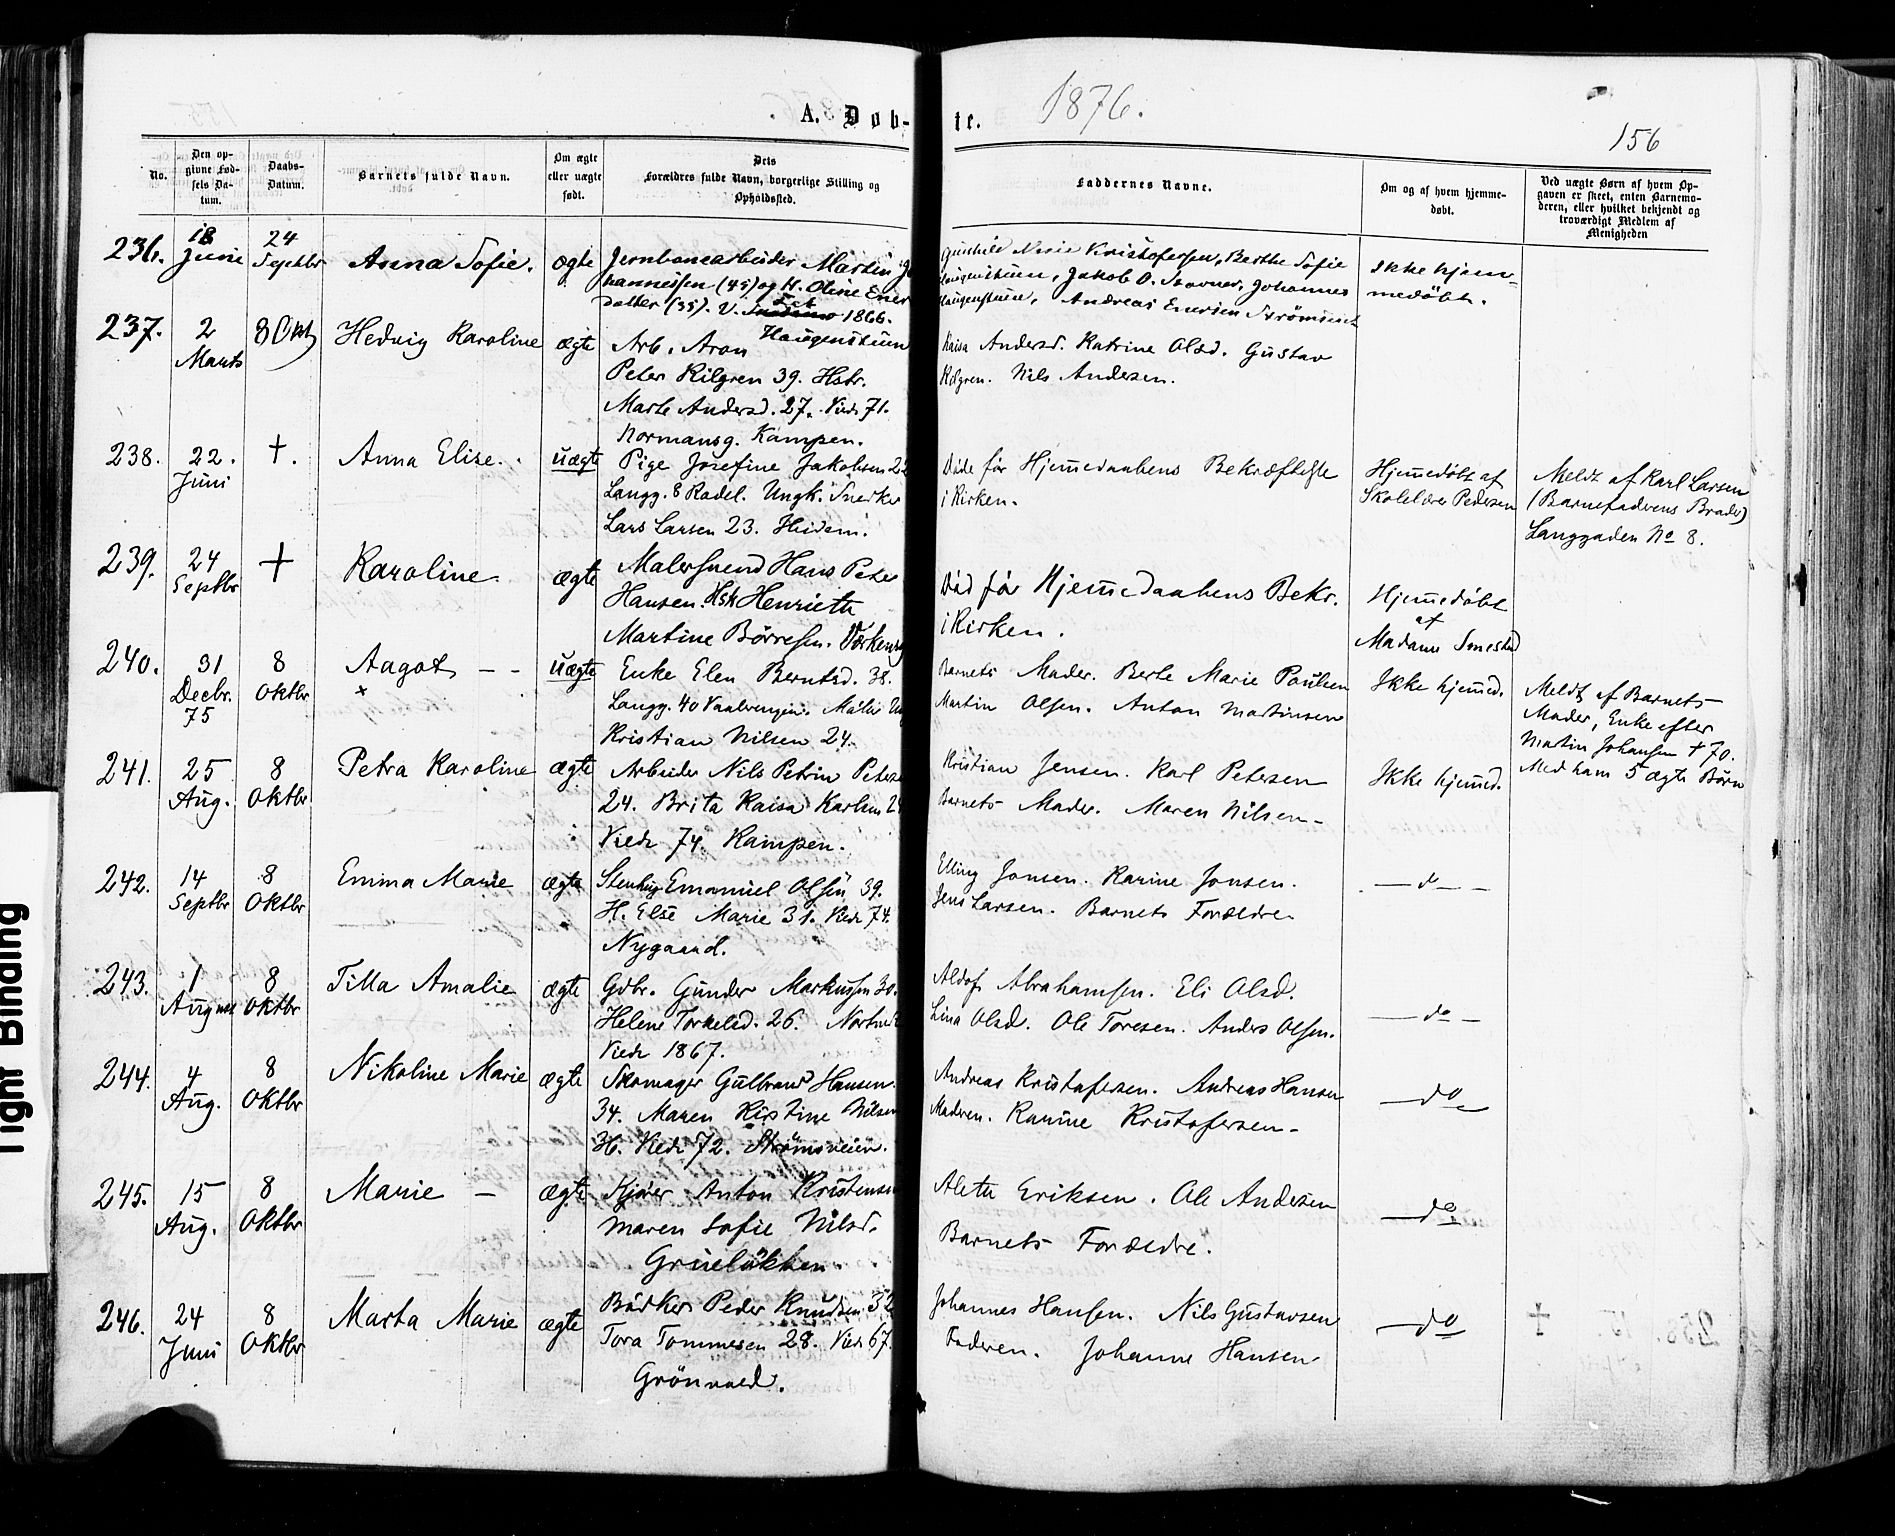 1876.
156
A. Døb-
te.
No.
Den op-
givne Fød-
sels Da-
tum.
Daabs-
Datum.
Barnets fulde Navn.
Om ægte
eller uægte
født.
Dets
Forældres fulde Navn, borgerlige Stilling og
Opholdssted.
Faddernes Navne.
Om og af hvem hjemme-
døbt.
Ved uægte Børn af hvem Op-
gaven er skeet, enten Barnemo-
deren, eller hvilket bekjendt og
troværdigt Medlem af
Menigheden
236. 18 Juni 24 Septbr Anna Sofie. ægte
Jernbanearbeider Martin Jo
hannessen (45) og H. Oline Ener
datter (35). V. 1866.
Haugenstuen
Gunhild Kristofersen, Berthe Sofie
Haugenstuen, Jakob O. Stovner, Johannes
Haugenstuen, Andreas Enersen
Ikke hjem-
medöbt.
237. 2 Marts 8 Okt Hedvig Karoline ægte
Arb. Aron
Peter Kilgren 39. Hstr.
Marte Andersd. 27. Viede 71.
Normansg. Kampen.
Kaisa Andersd. Katrine Olsd. Gustav
Kilgren. Nils Andersen.
238. 22. Juni †. Anna Elise. uægte
Pige Josefine Jakobsen 22
Langg. 8 Rodel. Ungk. Snerker
Lars Larsen 23. Hidem.
Døde før Hjemedaabens Bekræftelse
i Kirken.
Hjemedöbt af
Skolelærer Pedersen
Meldt af Karl Larsen
(Barnefaderens Broder)
Langgaden No 8.
239. 24 Septbr † Karoline ægte
Malersvend Hans Peter
Hansen. Hstr Henriette
Martine Börresen.
Död för Hjemedaabens Bekr.
i Kirken.
Hjemedöbt
af
Madame Smestad
240. 31 Decbr. 75 8 Oktbr Aagot – – uægte
×
Enke Elen Berntsd. 38.
Langg. 40 Vaalerengen. Maler
Kristian Nilsen 24.
Barnets Moder. Berte Marie Paulsen
Martin Olsen. Anton Martinsen
Ikke hjemed.
Meldt af Barnets
Moder, Enke efter
Martin Johansen † 70.
Med ham 5 ægte Börn
241. 25 Aug. 8 Oktbr Petra Karoline ægte
Arbeider Nils Petrin Peters
24. Brita Kaisa Karlsen 24
Viede 74. Kampen.
Kristian Jensen. Karl Petersen
Barnets Moder. Maren Nilsen
Ikke hjemed.
242. 14 Septbr 8 Oktbr Emma Marie ægte
Stenhug Emanuel Olsen 39.
H. Else Marie 31. Viede 74.
Nygaard.
Elling Jonsen. Karine Jonsen.
Jens Larsen. Barnets Forældre
— d — –
243. 1 August 8 Oktbr Tilla Amalie ægte
Gdbr. Gunder Markussen 30.
Helene Torkelsd. 26.
Viede 1867.
Aldof Abrahamsen. Eli Olsd.
Lina Olsd. Ole Toresen. Anders Olsen.
— do —
244. 4 Aug. 8 Oktbr Nikoline Marie ægte
Skomager Gulbrand Hansen.
34. Maren Kirstine Nilsen
36. Viede 72. Strömsveien.
Andreas Kristofersen. Andreas Hansen
Moderen. Kristofersen
— do
245. 15 Aug. 8 Oktbr Marie – ægte
Kjører Anton Kristensen
Maren Sofie Nilsd.
Grüelökken
Alette Eriksen. Ole Andersen
Barnets Forældre.
— do
246. 24 Juni 8 Oktbr Marta Marie ægte
Bödker Peder Knudsen 32
Tora Tommesen 28. Viede 67.
Grönvold.
Johannes Hansen. Nils Gustavsen
Faderen. Johanne Hansen
— do
Tight Binding